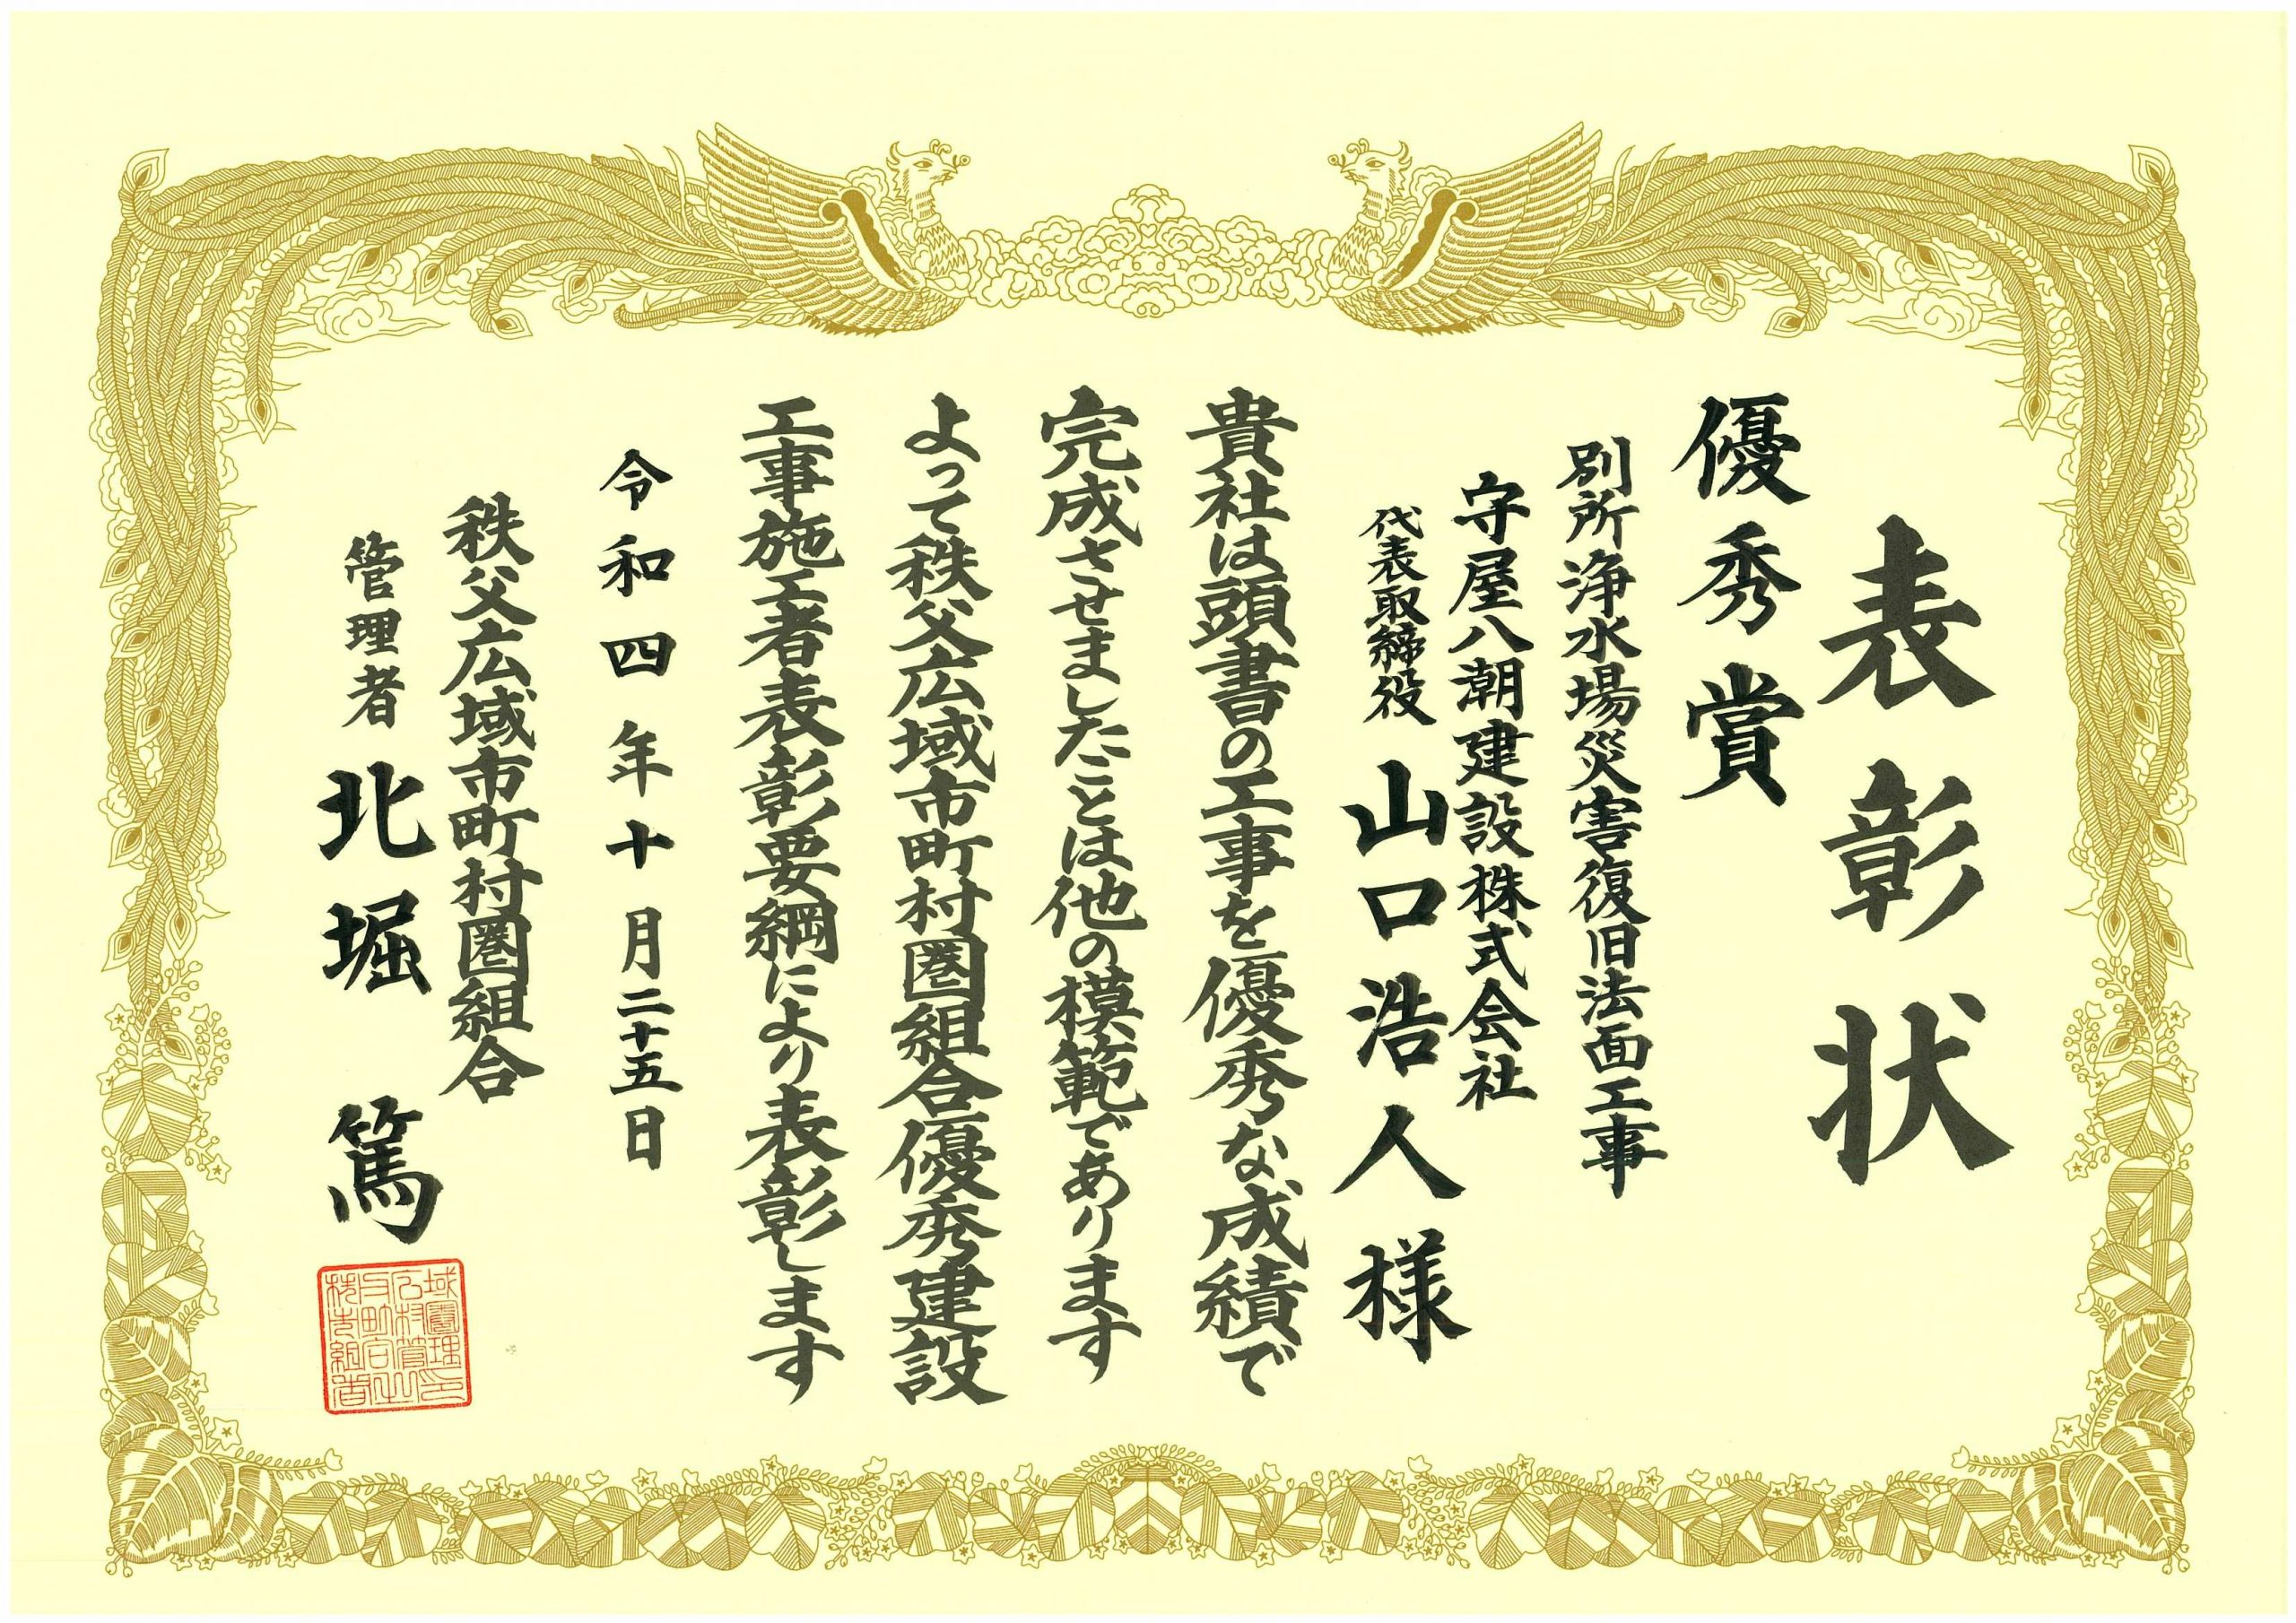 表彰状
優秀賞
別所浄水場災害復旧法面工事
守屋八潮建設株式会社
代表取締役 山口浩人様
貴社は頭書の工事を優秀な成績で
完成させましたことは他の模範であります
よって秩父広域市町村圏組合優秀建設
工事施工者表彰要綱により表彰します
令和四年十月二十五日
秩父広域市町村圏組合
管理者 北堀 篤